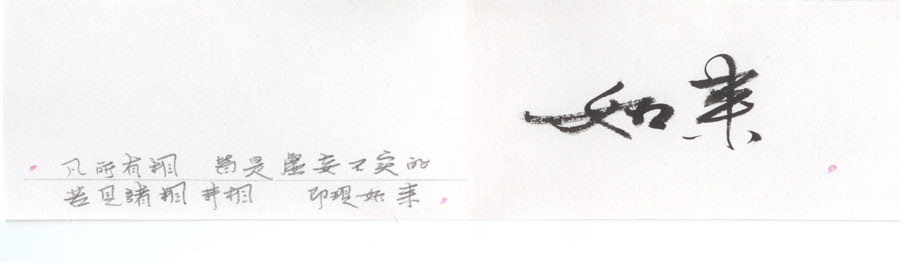 如来
凡所有相 皆是虚妄不实的
若見諸相非相 即現如来